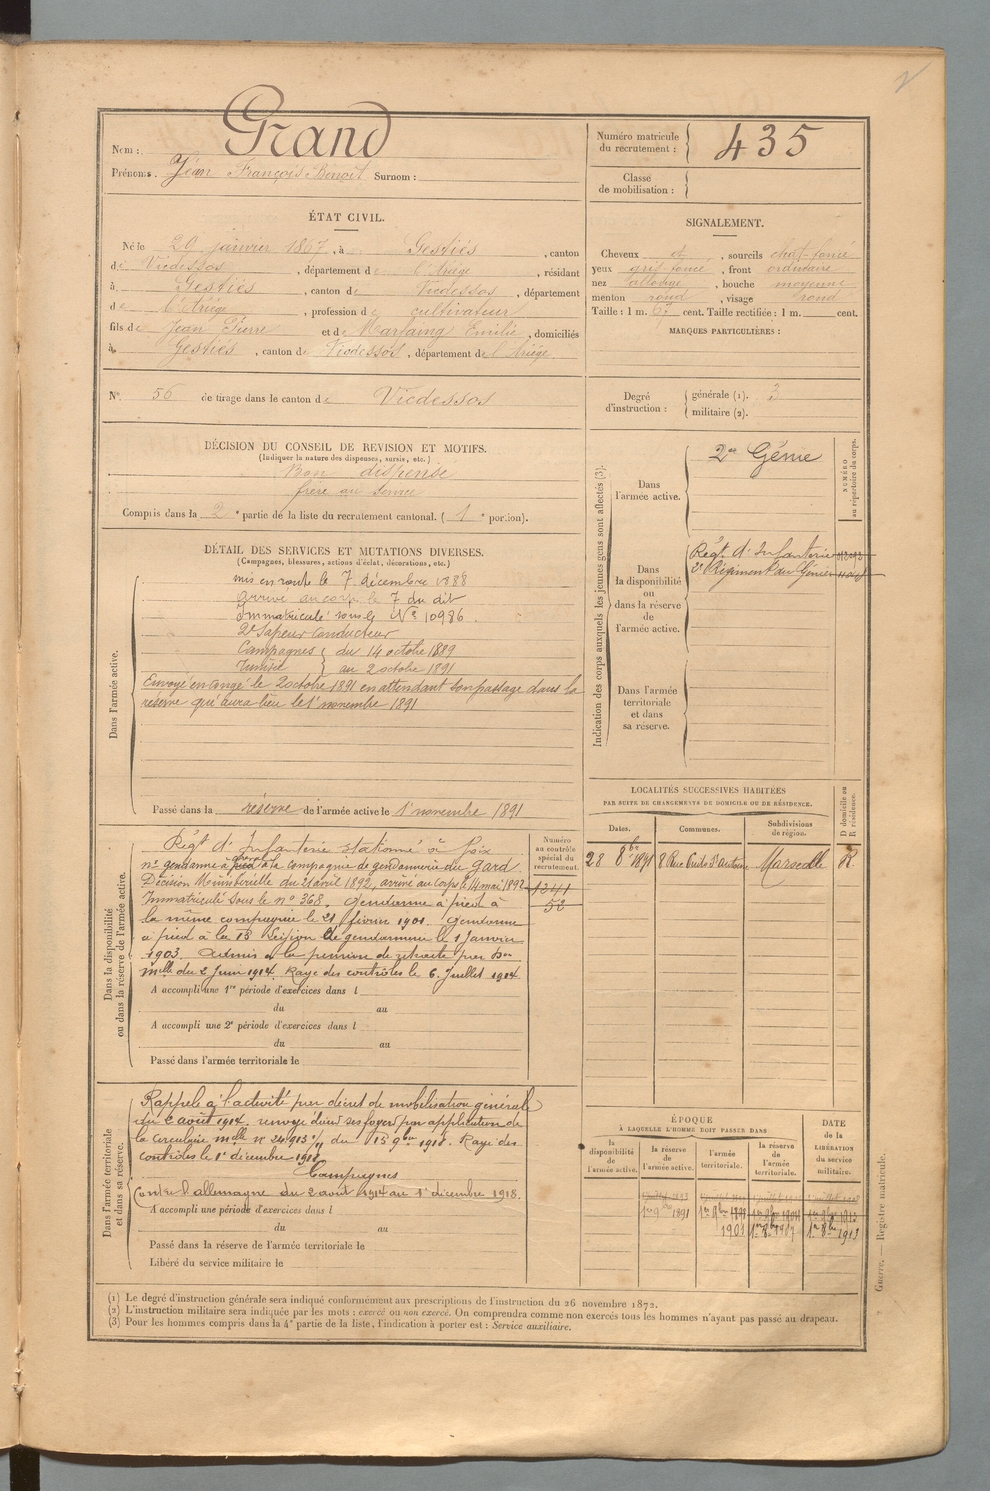 Nom : Grand
Prénoms. Jean François Benoit Surnom :
Numéro matricule du recrutement : 435
Classe de mobilisation :
ÉTAT CIVIL.
Né le 20 janvier 1867, à Gestiès, canton
de Vicdessos, département de l'Ariège, résidant
à Gestiès, canton de Vicdessos, département
de l'Ariège, profession de cultivateur
fils de Jean Pierre et de Marfaing Emilie, domiciliés
à Gestiès, canton de Vicdessos, département de l'Ariège
SIGNALEMENT.
Cheveux et, sourcils chat-foncé
yeux gris-foncé, front ordinaire
nez allongé, bouche moyenne
menton rond, visage rond
Taille : 1 m. 67 cent. Taille rectifiée : 1 m. cent.
MARQUES PARTICULIÈRES :
N° 56 de tirage dans le canton de Vicdessos
Degré d'instruction : générale (1). 3
militaire (2).
DÉCISION DU CONSEIL DE REVISION ET MOTIFS.
(Indiquer la nature des dispenses, sursis, etc.)
Bon dispensé
frère au service
Compris dans la 2e partie de la liste du recrutement cantonal. (1e portion).
DÉTAIL DES SERVICES ET MUTATIONS DIVERSES.
(Campagnes, blessures, actions d'éclat, décorations, etc.)
Dans l'armée active.
mis en route le 7 décembre 1888
arrivé au corps le 7 du dit
Immatriculé sous le N° 10986.
2e Sapeur Conducteur
Campagnes du 14 octobre 1889
Tunisie au 2 octobre 1891
Envoyé en congé le 2 octobre 1891 en attendant son passage dans la
réserve qui aura lieu le 1er novembre 1891
Passé dans la réserve de l'armée active le 1er novembre 1891
Indication des corps auxquels les jeunes gens sont affectés (3).
NUMÉRO au répertoire du corps.
Dans l'armée active.
2e Génie
Dans la disponibilité ou dans la réserve de l'armée active.
Régt d'Infanterie
2e Régiment du Génie
Dans l'armée territoriale et dans sa réserve.
LOCALITÉS SUCCESSIVES HABITÉES
PAR SUITE DE CHANGEMENTS DE DOMICILE OU DE RÉSIDENCE.
Dates. Communes. Subdivisions de région. D domicile ou R résidence.
28 8bre 1891 8 Rue Marseille R
Dans la disponibilité ou dans la réserve de l'armée active.
Numéro au contrôle spécial du recrutement.
1341
52
Régt d'Infanterie stationné à Foix
né gendarme à pied à la compagnie de gendarmerie du Gard
Décision Ministérielle du 21 avril 1892, arrivé au corps le 14 mai 1892
Immatriculé sous le n° 368. Gendarme à pied à
la même compagnie le 21 février 1901. Gendarme
à pied à la 15 Légion de gendarmerie le 1 Janvier
1903. Admis à la pension de retraite par Don
mlle du 2 Juin 1914. Rayé des contrôles le 6 Juillet 1914.
A accompli une 1re période d'exercices dans l
du au
A accompli une 2e période d'exercices dans l
du au
Passé dans l'armée territoriale le
Dans l'armée territoriale et dans sa réserve.
Rappelé à l'activité par décret de mobilisation générale
du 2 août 1914. renvoyé dans ses foyers par application de
la circulaire mlle N° 24.913 du 15 9bre 1918. Rayé des
contrôles le 1er décembre 1918
Campagnes
Contre l'allemagne du 2 août 1914 au 1er décembre 1918.
A accompli une période d'exercices dans l
du au
Passé dans la réserve de l'armée territoriale le
Libéré du service militaire le
ÉPOQUE
À LAQUELLE L'HOMME DOIT PASSER DANS
la disponibilité de l'armée active.
la réserve de l'armée active.
l'armée territoriale.
la réserve de l'armée territoriale.
DATE de la LIBÉRATION du service militaire.
1er 9bre 1891 1er 9bre 1898 1er 9bre 1904 1er 9bre 1913
1901 1er 8bre 1907 1er 8bre 1913
Guerre. — Registre matricule.
(1) Le degré d'instruction générale sera indiqué conformément aux prescriptions de l'instruction du 26 novembre 1872.
(2) L'instruction militaire sera indiquée par les mots : exercé ou non exercé. On comprendra comme non exercés tous les hommes n'ayant pas passé au drapeau.
(3) Pour les hommes compris dans la 4e partie de la liste, l'indication à porter est : Service auxiliaire.